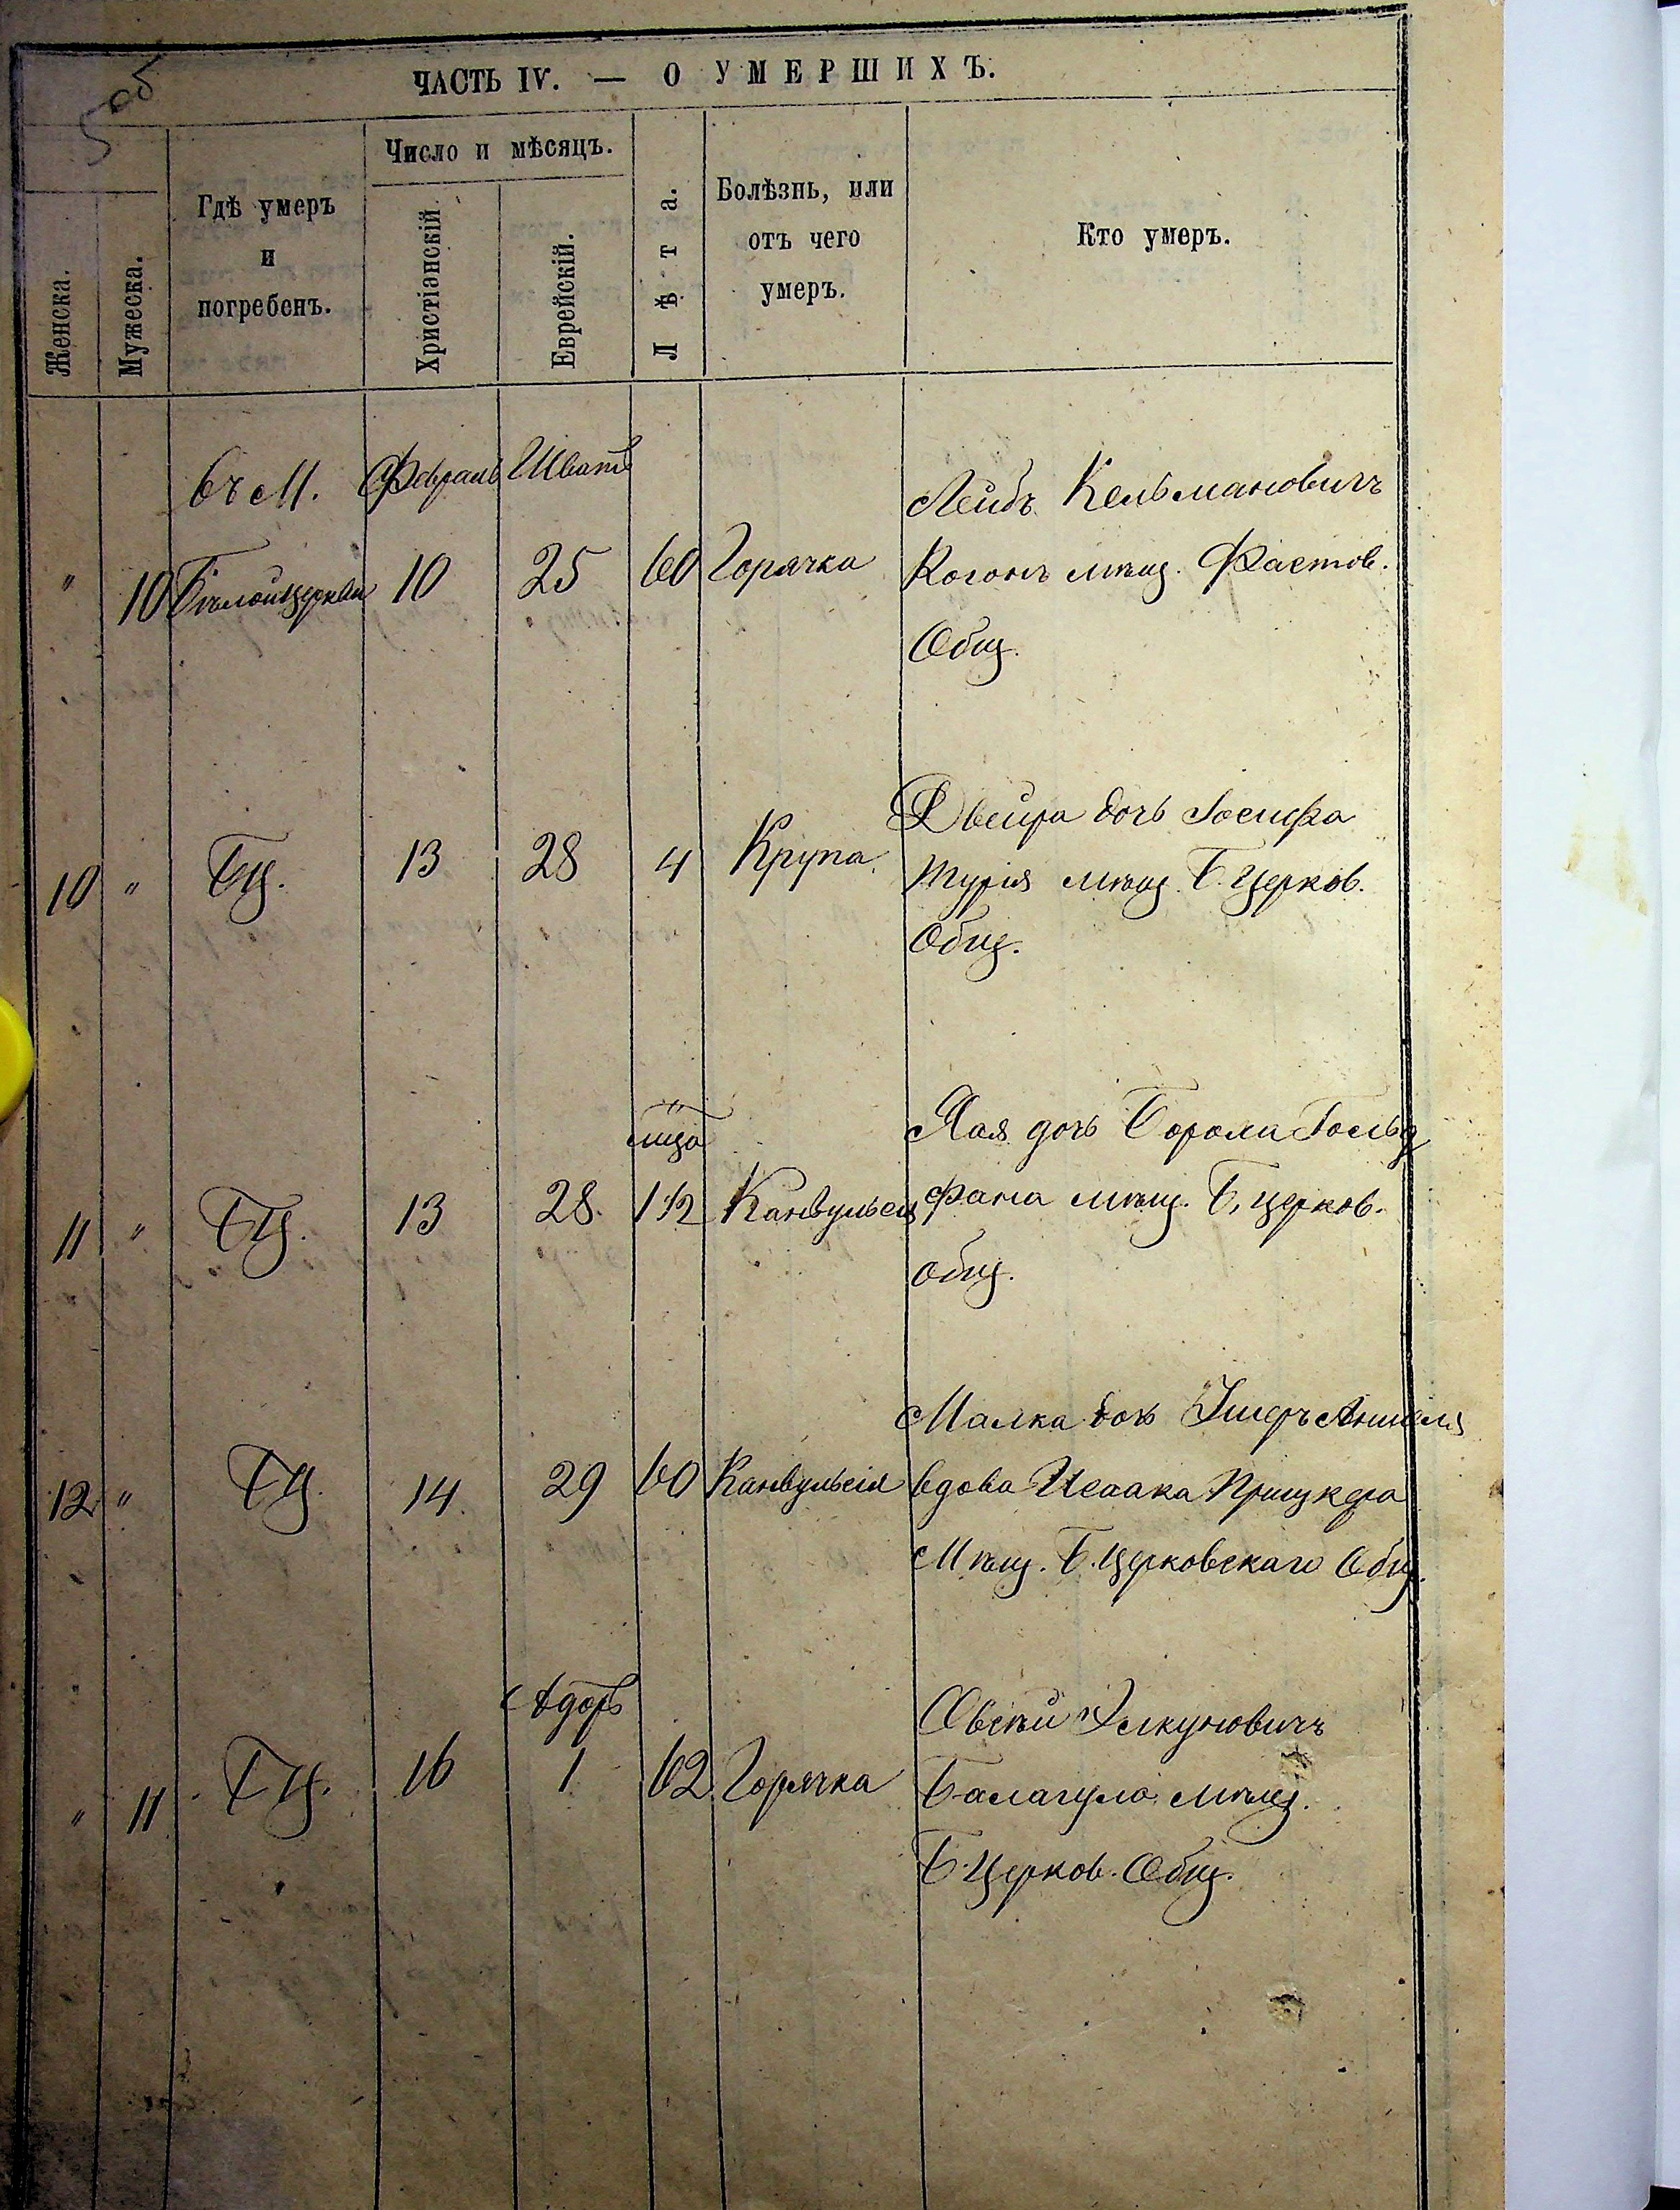 5 об
ЧАСТЬ IV. — О УМЕРШИХЪ.
Женска.
Мужеска.
Гдѣ умеръ
и
погребенъ.
Число и мѣсяцъ.
Христіэнскій
Еврейскій.
Лѣта.
Болѣзнь, или
отъ чего
умеръ.
Кто умеръ.
въ М. Февраль Шватъ Лейбъ Кельмановичъ
" 10 Бѣлойцеркви 10 25 60 Горячка Когонъ мѣщ. Фастов.
Общ.
Двейра дочь Іосифа
10 " БЦ. 13 28 4 Крупа. Турія мѣщ. Б. Церков.
Общ.
мца Хая дочь Борола Гольд
11 " БЦ. 13 28. 1 1/2 Канвульсц фана мѣщ. Б. церков.
общ.
Малка дочь Ушеръ Аншеля
12 " БЦ. 14 29 60 Канвульсія вдова Исаака Прицкера
Мѣщ. Б. Церковскаго Общ.
Адоръ Овсѣй
" 11 БЦ. 16 1 62 Горячка Балагула мѣщ.
Б. Церков. Общ.